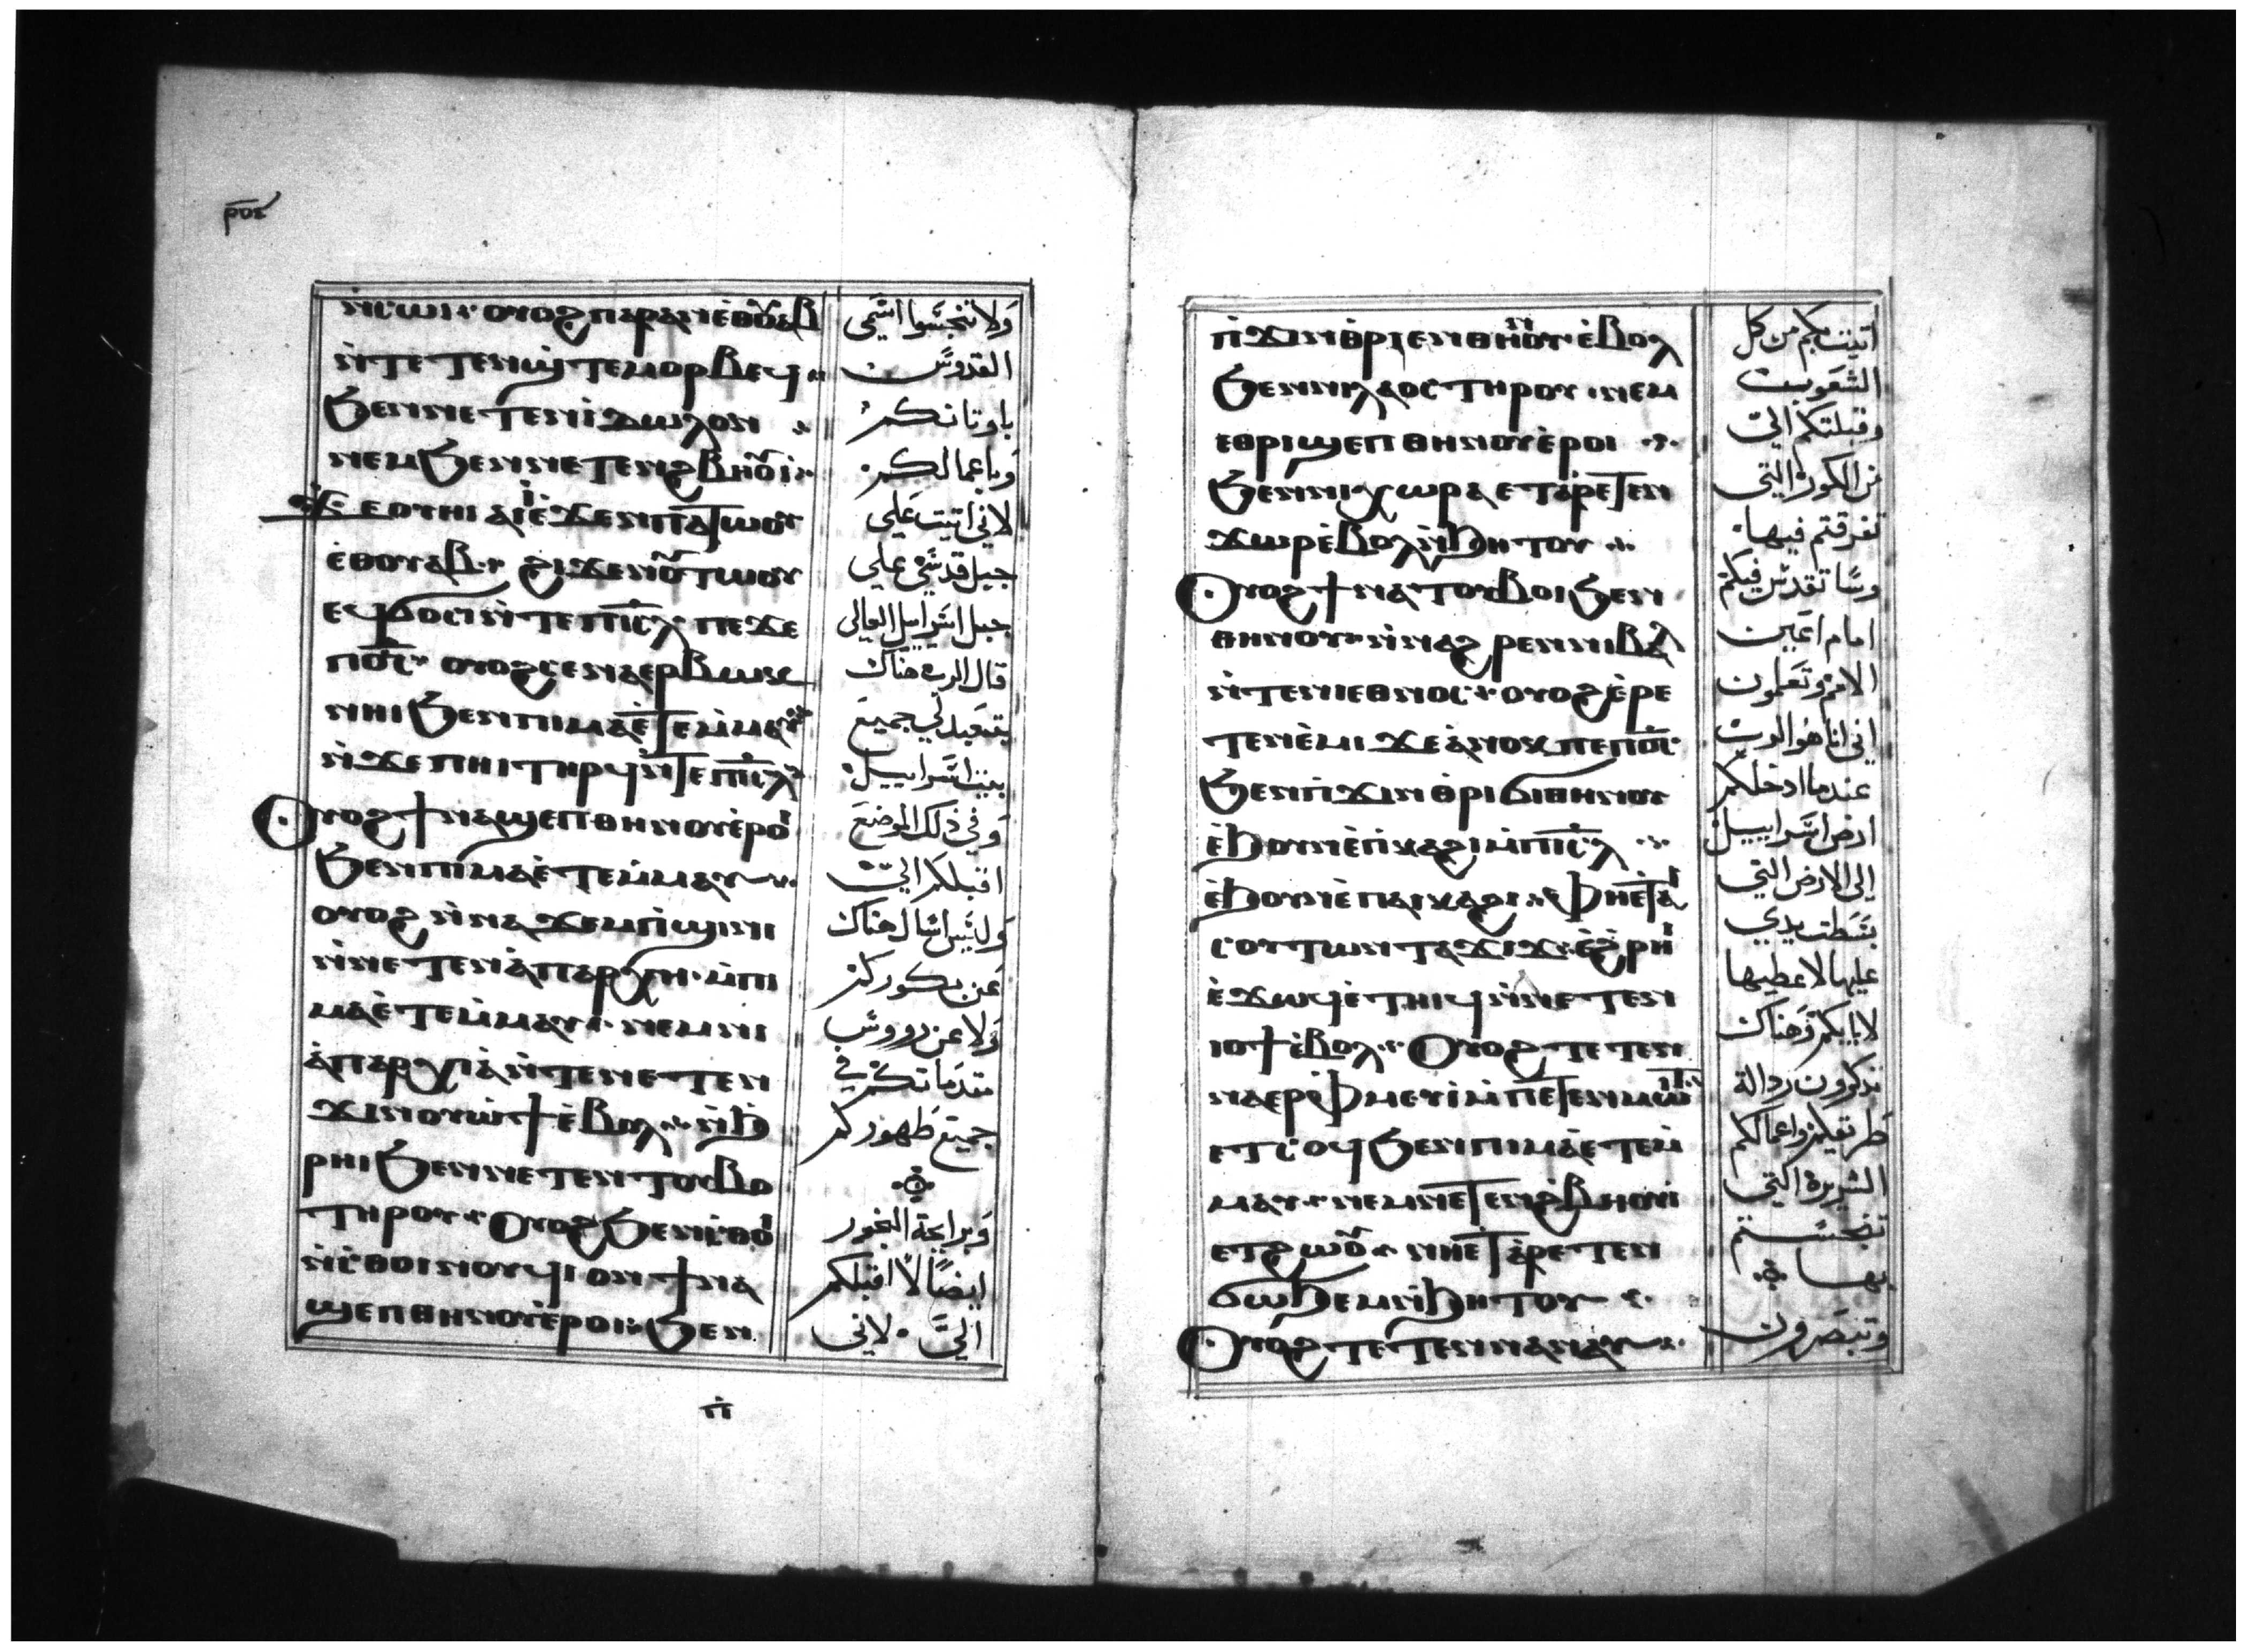 ⲣⲟⲋ
ⲛ̀ⲥⲱⲓ: ⲟⲩⲟϩ ⲡⲁⲣⲁⲛ ⲉⲑⲟⲩⲁⲃ
ⲛ̀ⲧⲉⲧⲉⲛϣ̀ⲧⲉⲙⲟⲣⲃⲉϥ
ϧⲉⲛⲛⲉⲧⲉⲛⲓ̀ⲇⲱⲗⲟⲛ
ⲛⲉⲙ ϧⲉⲛⲛⲉⲧⲉⲛϩⲃⲏⲟⲩⲓ̀
ϫⲉⲟⲩⲏⲓ ⲁⲓⲓ̀ ⲉ̀ϫⲉⲛⲡⲁⲧⲱⲟⲩ
ⲉ̀ⲑⲟⲩⲁⲃ: ϩⲓϫⲉⲛⲟⲩⲧⲱⲟⲩ
ⲉϥϭⲟⲥⲓ ⲛ̀ⲧⲉⲡⲓⲥ̅ⲗ ⲡⲉϫⲉ
ⲡⲟ̅ⲥ̅ ⲟⲩⲟϩ ⲥⲉⲛⲁⲉⲣⲃⲱⲕ
ⲛⲏⲓ ϧⲉⲛⲡⲓⲙⲁⲉ̀ⲧⲉⲙ̀ⲙⲁⲩ
ⲛ̀ϫⲉⲡⲏⲓ ⲧⲏⲣϥ ⲛ̀ⲧⲉⲡⲓⲥ̅ⲗ
Ⲟⲩⲟϩ ϯⲛⲁϣⲉⲡⲑⲏⲛⲟⲩ ⲉ̀ⲣⲟⲓ
ϧⲉⲛⲡⲓⲙⲁⲉ̀ⲧⲉⲙ̀ⲙⲁⲩ
ⲟⲩⲟϩ ⲛ̀ⲛⲁϫⲉⲙⲡ̀ϣⲓⲛⲓ
ⲛ̀ⲛⲉⲧⲉⲛⲁ̀ⲡⲁⲣⲭⲏ ⲙ̀ⲡⲓ
ⲙⲁⲉ̀ⲧⲉⲙ̀ⲙⲁⲩ: ⲛⲉⲙⲛⲓ
ⲁ̀ⲡⲁⲣⲭⲓⲁ̀ ⲛ̀ⲧⲉⲛⲉⲧⲉⲛ
ϫⲓⲛⲟⲩⲱⲛϯ ⲉ̀ⲃⲟⲗ ⲛ̀ϧ
ⲣⲏⲓ ϧⲉⲛⲛⲉⲧⲉⲛⲧⲟⲩⲃⲟ
ⲧⲏⲣⲟⲩ: Ⲟⲩⲟϩ ϧⲉⲛⲥ̀ⲑⲟⲓ
ⲛ̀ⲥ̀ⲑⲟⲓⲛⲟⲩϥⲓ ⲟⲛ ϯⲛⲁ
ϣⲉⲡⲑⲏⲛⲟⲩ ⲉ̀ⲣⲟⲓ: ϧⲉⲛ
ⲡ̀
ولا تنجسوا اسمي
القدوس
باوتانكم
وباعمالكم
لاني اتيت علي
جبل قدسي علي
جبل اسراييل العالي
قال الرب هناك
يتعبد لي جميع
بيت اسراييل
وفي ذلك الموضع
اقبلكم الي
وليس اسال هناك
عن بكوركم
ولا عن رووس
متقدماتكم في
جميع طهوركم
وبرايحة البخور
ايضا لا اقبلكم
الي لاني
ⲡ̀ϫⲓⲛⲑⲣⲓⲉⲛⲑⲏⲛⲟⲩ ⲉ̀ⲃⲟⲗ
ϧⲉⲛⲛⲓⲗⲁⲟⲥ ⲧⲏⲣⲟⲩ ⲛⲉⲙ
ⲉⲑⲣⲓϣⲉⲡⲑⲏⲛⲟⲩ ⲉ̀ⲣⲟⲓ
ϧⲉⲛⲛⲓⲭⲱⲣⲁ ⲉⲧⲁⲣⲉⲧⲉⲛ
ϫⲱⲣ ⲉ̀ⲃⲟⲗ ⲛ̀ϧⲏⲧⲟⲩ
Ⲟⲩⲟϩ ϯⲛⲁⲧⲟⲩⲃⲟⲓ ϧⲉⲛ
ⲑⲏⲛⲟⲩ ⲛ̀ⲛⲁϩⲣⲉⲛⲛⲓⲃⲁⲗ
ⲛ̀ⲧⲉⲛⲓⲉⲑⲛⲟⲥ: ⲟⲩⲟϩ ⲉ̀ⲣⲉ
ⲧⲉⲛⲉ̀ⲙⲓ ϫⲉ ⲁ̀ⲛⲟⲕ ⲡⲉ ⲡⲟ̅ⲥ̅
ϧⲉⲛⲡ̀ϫⲓⲛⲑⲣⲓϭⲓⲑⲏⲛⲟⲩ
ⲉ̀ϧⲟⲩⲛ ⲉ̀ⲡ̀ⲕⲁϩⲓ ⲙ̀ⲡⲓⲥ̅ⲗ
ⲉ̀ϧⲟⲩⲛ ⲉ̀ⲡⲁⲓⲕⲁϩⲓ ⲫⲏⲉⲧⲁⲓ
ⲥⲟⲩⲧⲱⲛ ⲧⲁϫⲓϫ ⲉ̀ϩ̀ⲣⲏⲓ
ⲉ̀ϫⲱϥ ⲉ̀ⲧⲏⲓϥ ⲛ̀ⲛⲉⲧⲉⲛ
ⲓⲟϯ ⲉ̀ⲃⲟⲗ: Ⲟⲩⲟϩ ⲧⲉⲧⲉⲛ
ⲛⲁⲉⲣⲫⲙⲉⲩⲓ̀ ⲙ̀ⲡⲉⲧⲉⲛⲙⲱⲓⲧ
ⲉⲧϩⲟⲩ ϧⲉⲛⲡⲓⲙⲁⲉ̀ⲧⲉⲙ̀
ⲙⲁⲩ: ⲛⲉⲙⲛⲉⲧⲉⲛϩ̀ⲃⲏⲟⲩⲓ
ⲉⲧϩⲱⲟⲩ: ⲛⲏⲉⲧⲁⲣⲉⲧⲉⲛ
ϭⲱϧⲉⲙ ⲛ̀ϧⲏⲧⲟⲩ
Ⲟⲩⲟϩ ⲧⲉⲧⲉⲛⲛⲁⲛⲁⲩ
اتيت بكم من كل
الشعوب
وقبلتكم الي
من الكور التي
تفرقتم فيها
وساتقدس فيكم
امام اعين
الامم وتعلمون
اني انا هو الرب
عندما ادخلكم
ارض اسراييل
الي الارض التي
بسطت يدي
عليها لاعطيها
لابايكم وهناك
تذكرون رداله
طريقكم واعمالكم
الشريرة التي
تنجستم
بها
وتبصرون